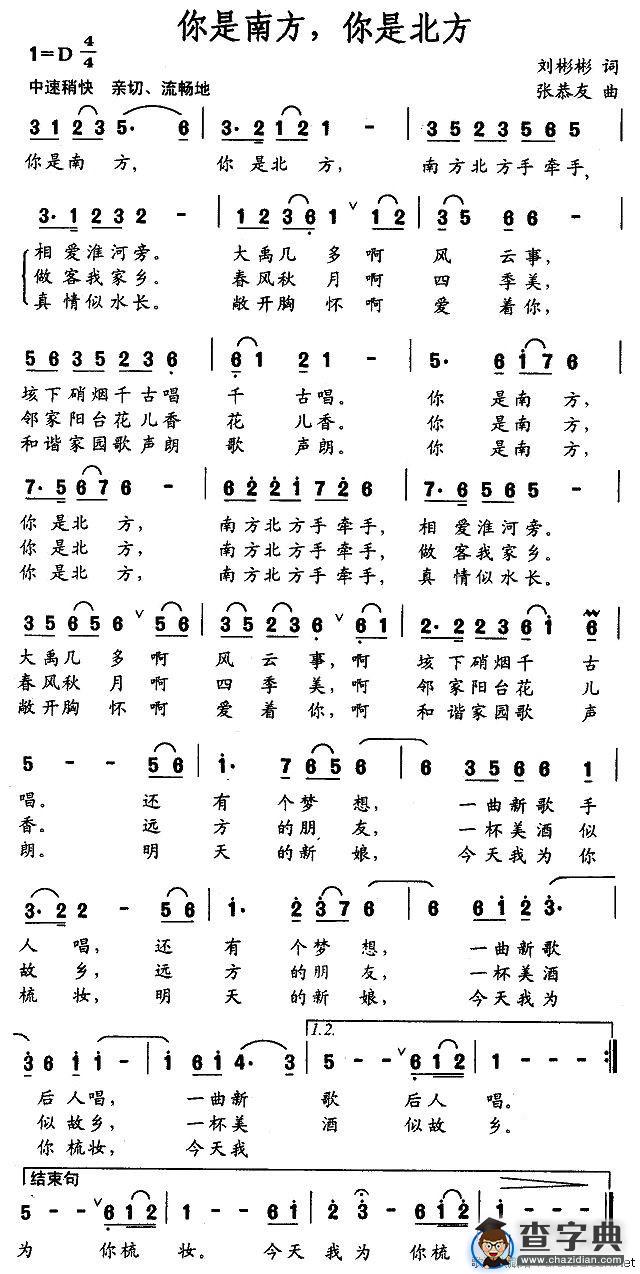 你是南方，你是北方
1=D 4/4
中速稍快 亲切、流畅地
刘彬彬 词
张恭友 曲
3 1 2 3 5· 6 | 3· 2 1 2 1 - | 3 5 2 3 5 6 5
你是南 方， 你 是北 方， 南方北方手牵手，
3· 1 2 3 2 - | 1 2 3 6 1 ∨ 1 2 | 3 5 6 6 -
相 爱淮河旁。 大禹几 多 啊 风 云事，
做 客我家乡。 春风秋 月 啊 四 季美，
真 情似水长。 敞开胸 怀 啊 爱 着你，
5 6 3 5 2 3 6 | 6 1 2 - - | 5· 6 i 7 6
垓下硝烟千古唱 千 古唱。 你 是南方，
邻家阳台花儿香 花 儿香。 你 是南方，
和谐家园歌声朗 歌 声朗。 你 是南方，
7· 5 6 7 6 - | 6 2 2 i 7 2 6 | 7· 6 5 6 5 -
你 是北 方， 南方北方手牵手， 相 爱淮河旁。
你 是北 方， 南方北方手牵手， 做 客我家乡。
你 是北 方， 南方北方手牵手， 真 情似水长。
3 5 6 5 6 ∨ 5 6 | 3 5 2 3 6 ∨ 6 1 | 2· 2 2 3 6 i 6
大禹几 多 啊 风 云事，啊 垓 下硝烟千 古
春风秋 月 啊 四 季美，啊 邻 家阳台花 儿
敞开胸 怀 啊 爱 着你，啊 和 谐家园歌 声
5 - - 5 6 | i· 7 6 5 6 | 6 3 5 6 6 1
唱。 还 有 个梦 想， 一曲新歌手
香。 远 方 的朋 友， 一杯美酒似
朗。 明 天 的新 娘， 今天我为你
3· 2 2 - 5 6 | i· 2 3 7 6 - | 6 6 i 2 3·
人 唱， 还 有 个梦 想， 一曲新歌
故 乡， 远 方 的朋 友， 一杯美酒
梳 妆， 明 天 的新 娘， 今天我为
3 6 i i - | i 6 i 4· 3 | 5 - - ∨ 6 1 2 | 1 - - - :|
1.2.
后人唱， 一曲新 歌 后人 唱。
似故乡， 一杯美 酒 似故 乡。
你梳妆， 今天我
结束句
5 - - ∨ 6 1 2 | 1 - - 6 i | 2 3 - 6 i | i - - -
为 你梳 妆。 今天 我 为 你梳
查字典
www.chazidian.com